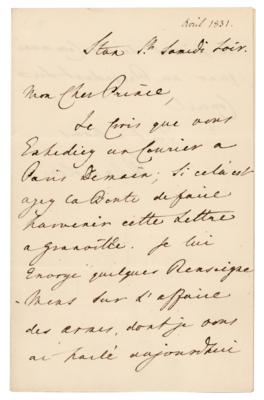 Avril 1831.
Stan St. Samedi Soir.
Mon Cher Prince,
Je Crois que vous
Expediez un Courier a
Paris Demain; Si cela est
ayez la Bonté de faire
parvenir cette Lettre
a Granville. Je lui
Envoye quelques Renseigne
Mens sur l'affaire
des armes, dont je vous
ai parlé aujourdhui